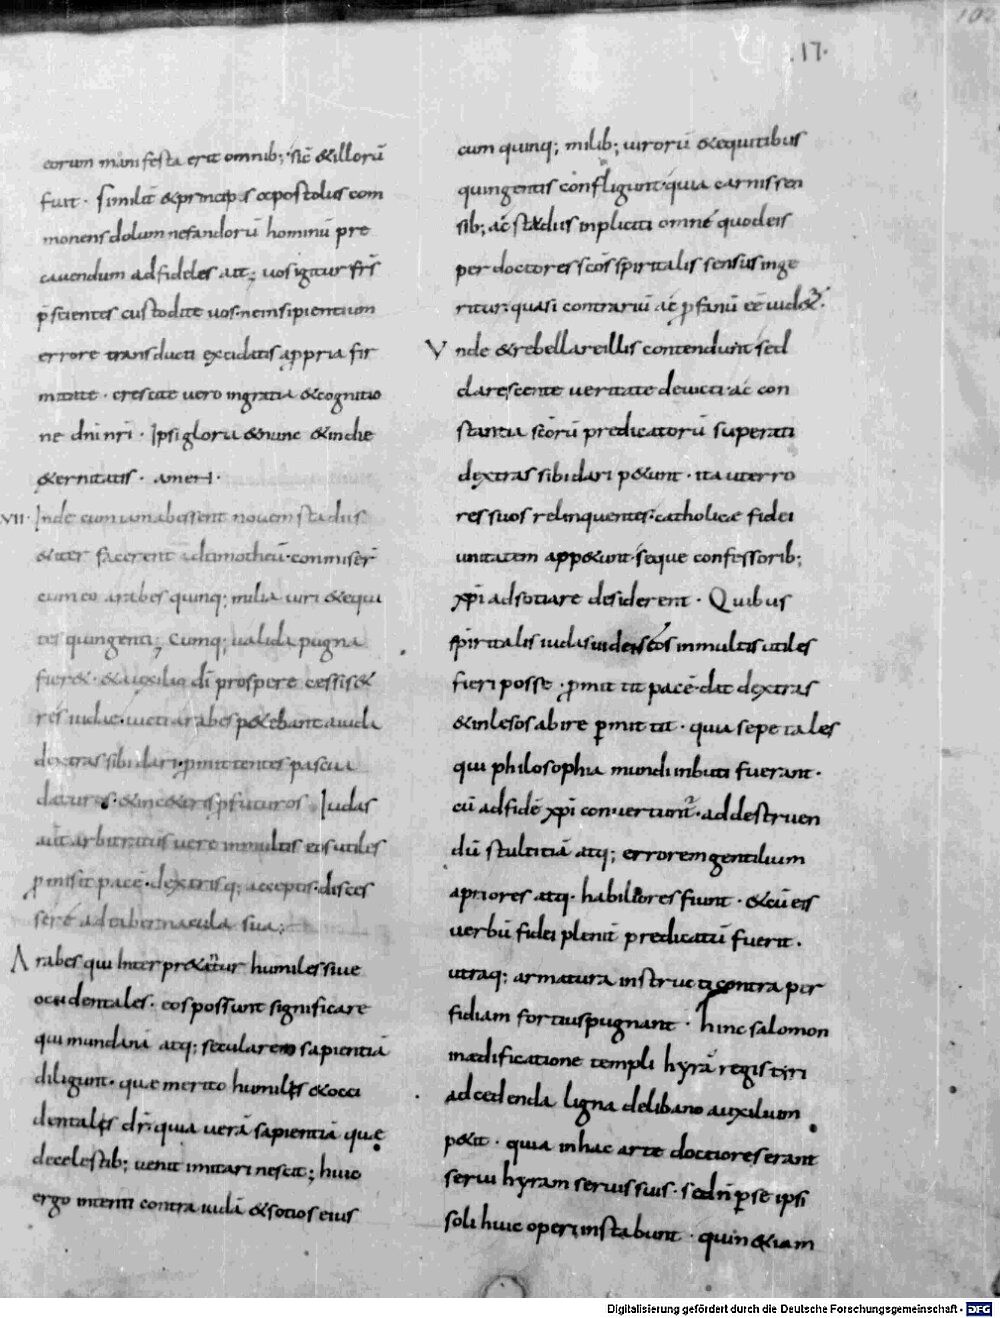 102
17.
eorum manifesta erit omnib; sic & illorū
fuit. Similit & princeps apostolus com
monens dolum nefandorū hominū pre
cauendum ad fideles ait; uos igitur frs̄
p̄scientes custodite uos. ne insipientium
errore transducti excidatis a ppria fir
mitate. crescite uero in gratia & cognitio
ne dn̄i nr̄i. Ipsi gloria & nunc & in die
&ernitatis. amen.
VII. Inde cum iam abissent nouem stadiis
& iter facerent ad timotheū. commiser
cum eo arabes quinq; milia uiri & equi
tes quingenti; Cumq; ualida pugna
fier&. & auxilio dī prospere cessiss&
res iudae. uicti arabes petebant a iuda
dextras sibi dari. pmittentes pascua
daturos. & in c&eris pfuturos. Iudas
aut arbitratus uere in multis eis utiles
pmisit pacē. dextrisq; acceptis. disces
sere ad tabernacula sua;
Arabes qui interpr&antur humiles siue
occidentales. eos possunt significare
qui mundanā atq; secularem sapientiā
diligunt. quae merito humiles & occi
dentales dn̄r; quia uerā sapientiā quę
de celestib; uenit imitari nesciunt; huic
ergo interim contra iudā & socios eius
cum quinq; milib; uirorū & equitibus
quingentis confligunt. quia carnis sen
sib; ac studiis inpliciti omne quod eis
per doctores scōs spiritalis sensus inge
ritur. quasi contrariū ac pfanū eē uid&ur.
Vnde & rebellare illis contendunt sed
clarescente ueritate deuicti. ac con
stantia scōrū predicatorū superati
dextras sibi dari p&unt. ita ut erro
res suos relinquentes. catholicae fidei
unitatem app&unt. seque confessorib;
xp̄i adsociare desiderent. Quibus
spiritalis iudas uidens eos in multis utiles
fieri posse. pmittit pacē. dat dextras
& inlesos abire pmittit. quia sepe tales
qui philosophia mundi inbuti fuerant.
cū ad fidē xp̄i conuertunt̄. ad destruen
dū stultitiā atq; errorem gentilium
apriores atq. habiliores fiunt. & cū eis
uerbū fidei plenit̄ predicatū fuerit.
utraq; armatura instructi contra per
fidiam fortius pugnant. hinc salomon
in aedificatione templi hyrā regis tiri
ad cedenda ligna de libano auxilium
p&it. quia in hac arte doctiores erant
serui hyram seruis suis. sed n̄ p se ipsi
soli huic operi instabunt. quin & iam
Digitalisierung gefördert durch die Deutsche Forschungsgemeinschaft - DFG